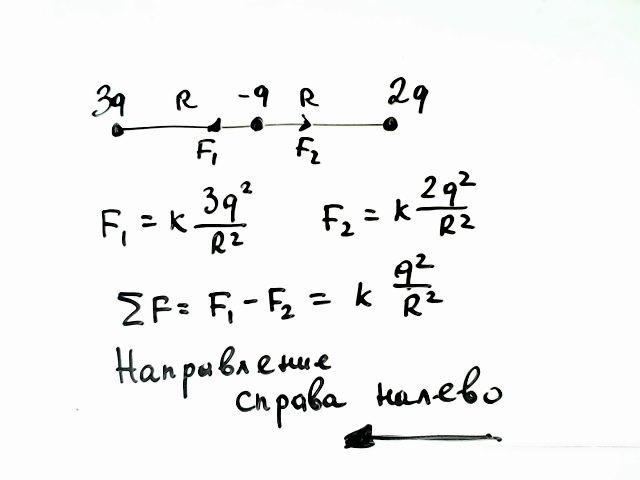 3q R -q R 2q
F₁ F₂
F₁ = k 3q²/R² F₂ = k 2q²/R²
∑F = F₁ - F₂ = k q²/R²
Напрывление
справа налево